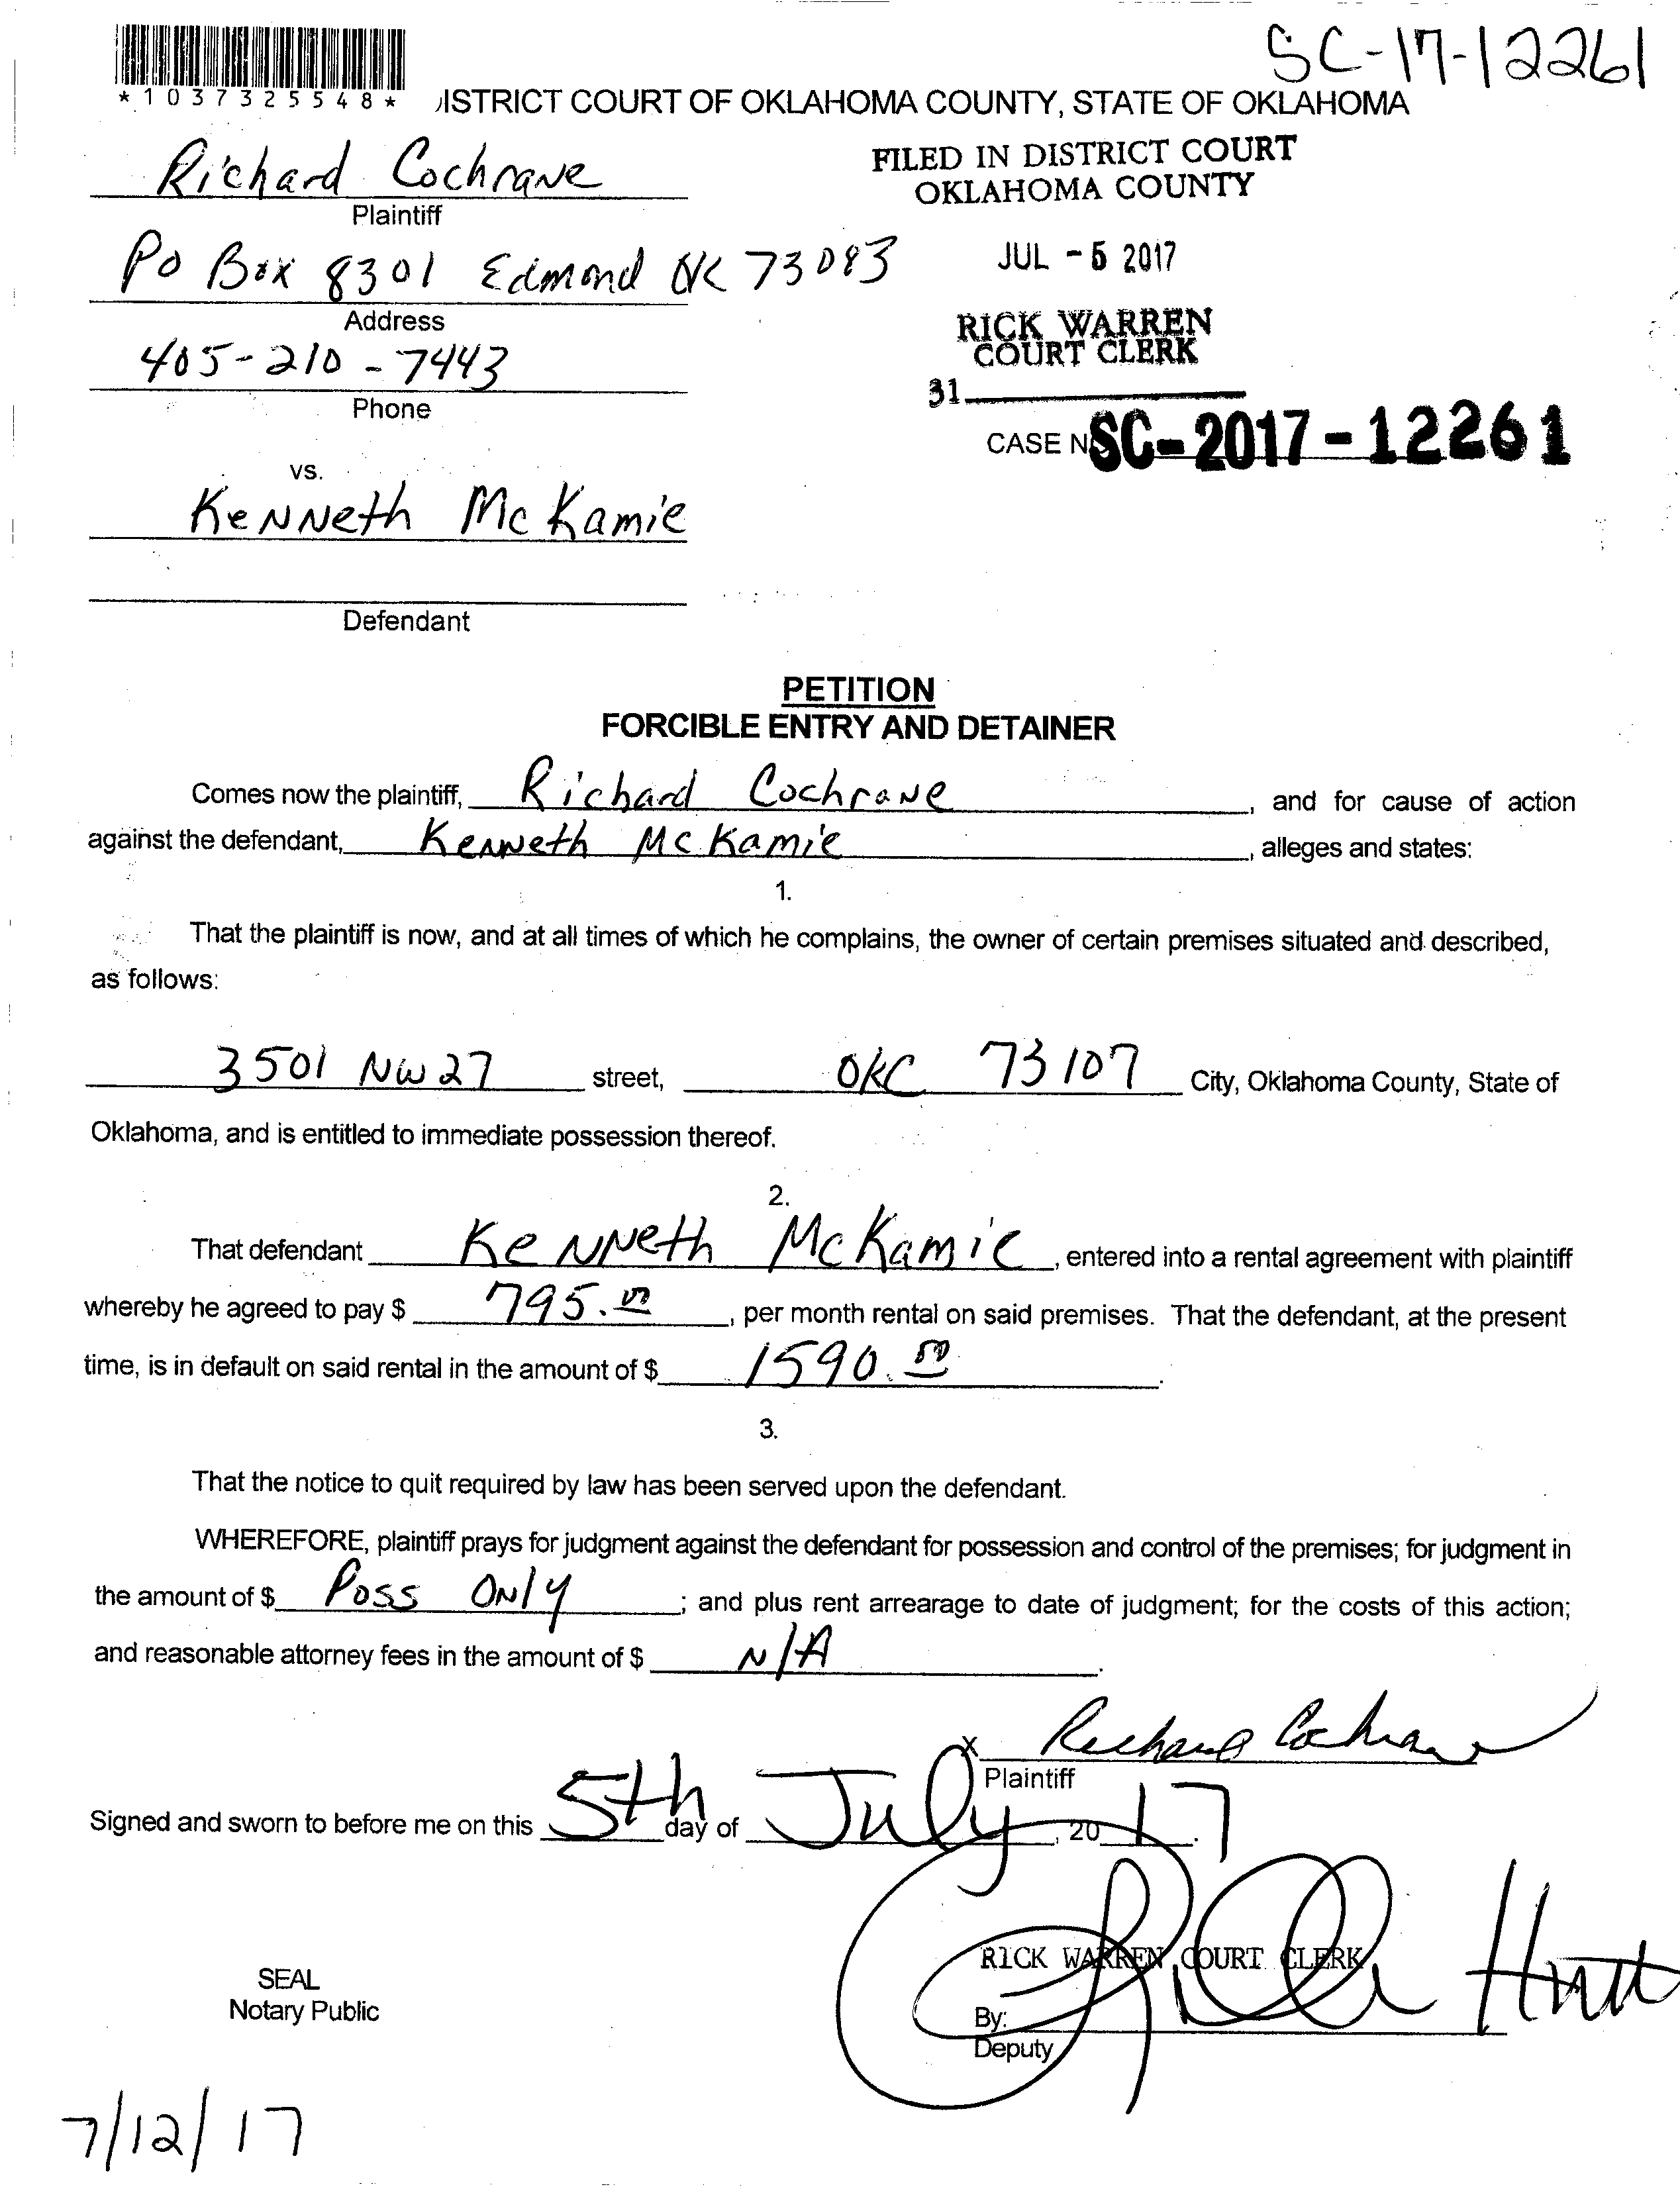 SC-17-12261
*1037325548*
ISTRICT COURT OF OKLAHOMA COUNTY, STATE OF OKLAHOMA
Richard Cochrane
Plaintiff
FILED IN DISTRICT COURT
OKLAHOMA COUNTY
PO Box 8301 Edmond OK 73083
Address
JUL -5 2017
405-210-7443
Phone
RICK WARREN
COURT CLERK
31
CASE N SC-2017-12261
vs.
Kenneth McKamie
Defendant
PETITION
FORCIBLE ENTRY AND DETAINER
Comes now the plaintiff, Richard Cochrane, and for cause of action
against the defendant, Kenneth McKamie, alleges and states:
1.
That the plaintiff is now, and at all times of which he complains, the owner of certain premises situated and described,
as follows:
3501 NW 27 street, OKC 73107 City, Oklahoma County, State of
Oklahoma, and is entitled to immediate possession thereof.
2.
That defendant Kenneth McKamie, entered into a rental agreement with plaintiff
whereby he agreed to pay $ 795.00, per month rental on said premises. That the defendant, at the present
time, is in default on said rental in the amount of $ 1590.
3.
That the notice to quit required by law has been served upon the defendant.
WHEREFORE, plaintiff prays for judgment against the defendant for possession and control of the premises; for judgment in
the amount of $ Poss Only; and plus rent arrearage to date of judgment; for the costs of this action;
and reasonable attorney fees in the amount of $ N/A.
X Richard Cochrane
Plaintiff
Signed and sworn to before me on this 5th day of July, 2017.
RICK WARREN COURT CLERK
SEAL
Notary Public
By:
Deputy
7/12/17